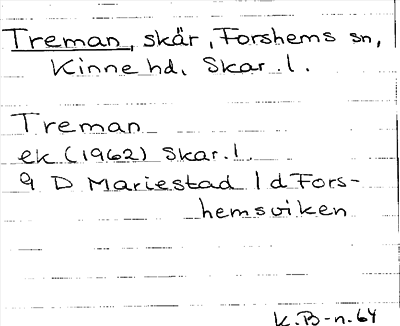 Treman, skär, Forshems sn,
Kinne hd, Skar. l.
Treman
ek (1962) Skar. l.
9 D Mariestad l d Fors-
hemsviken
K.B-n. 64